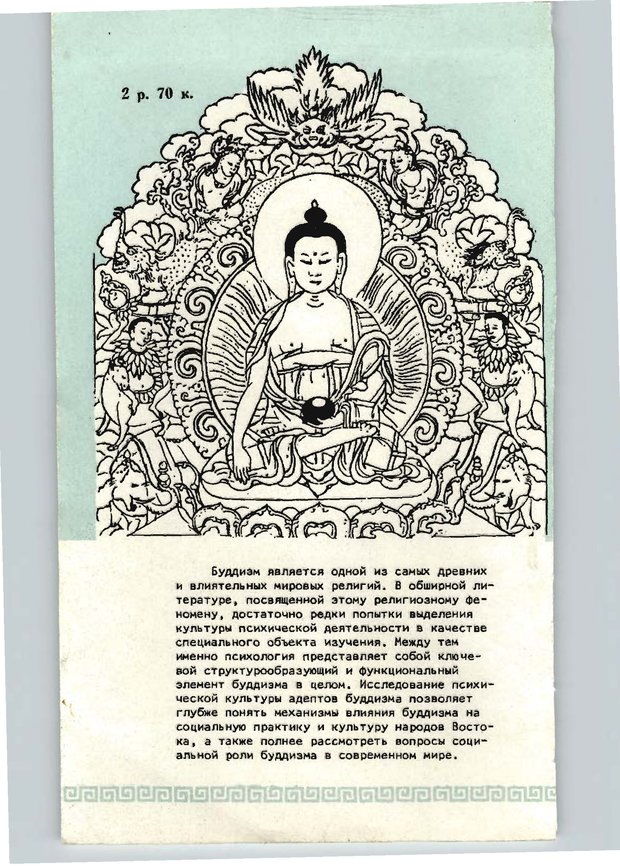 2 р. 70 к.
Буддизм является одной из самых древних
и влиятельных мировых религий. В обширной ли-
тературе, посвященной этому религиозному фе-
номену, достаточно редки попытки выделения
культуры психической деятельности в качестве
специального объекта изучения. Между тем
именно психология представляет собой ключе-
вой структурообразующий и функциональный
элемент буддизма в целом. Исследование психи-
ческой культуры адептов буддизма позволяет
глубже понять механизмы влияния буддизма на
социальную практику и культуру народов Восто-
ка, а также полнее рассмотреть вопросы соци-
альной роли буддизма в современном мире.